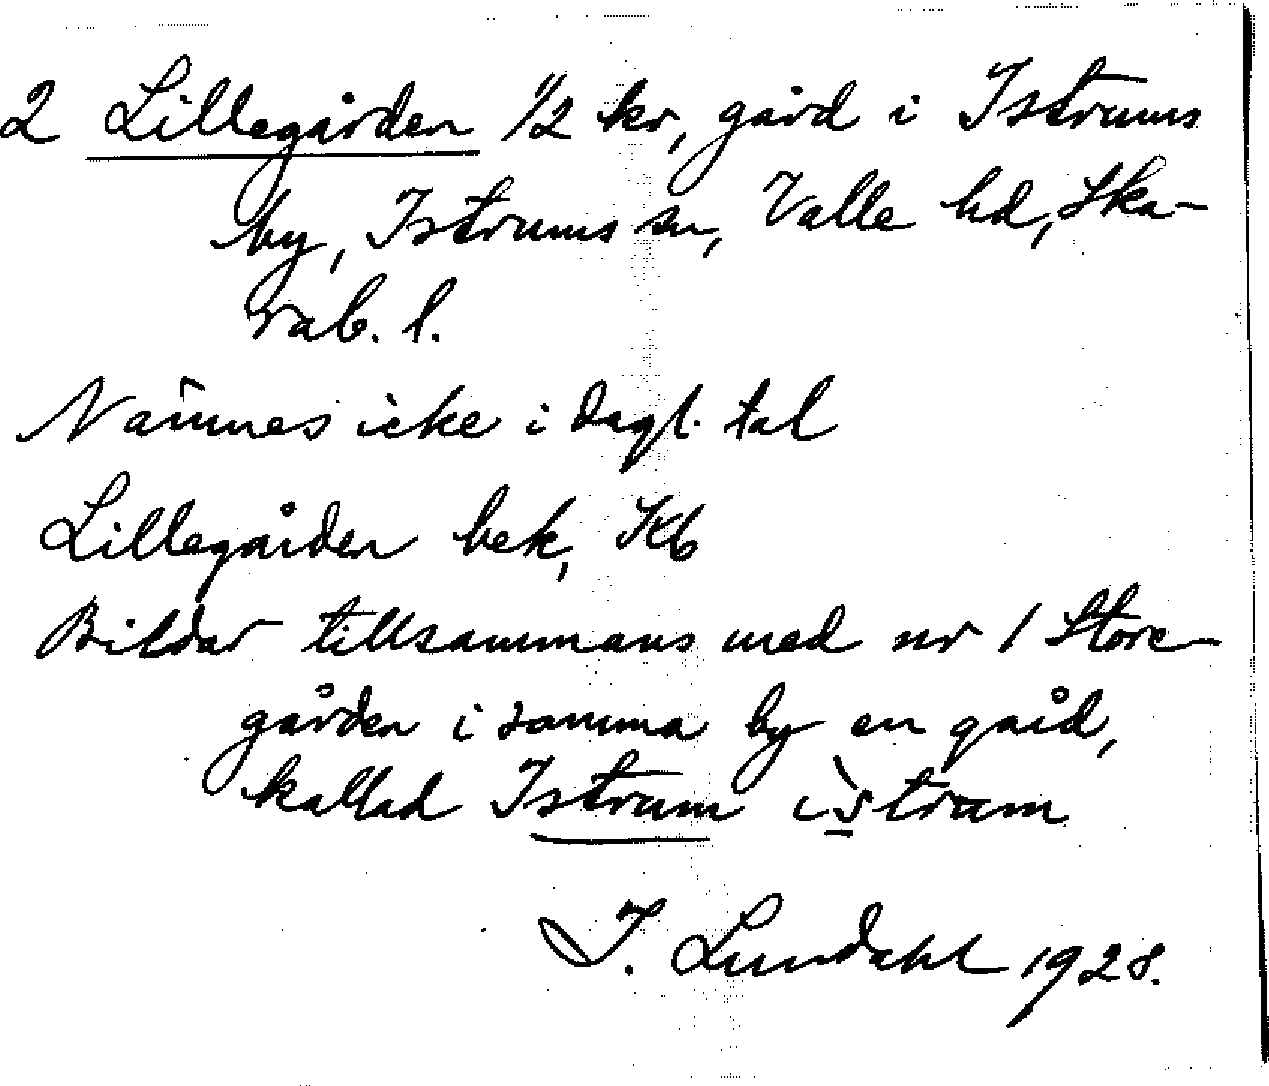 2 Lillegården 1/2 kr, gård i Istrums
by, Istrums sn, Valle hd, Ska-
rab. l.
Nämnes icke i dagl. tal
Lillegården bek, Kb
Bildar tillsammans med nr 1 Store-
gården i samma by en gård,
kallad Istrum ìstrum
I. Lundahl 1928.